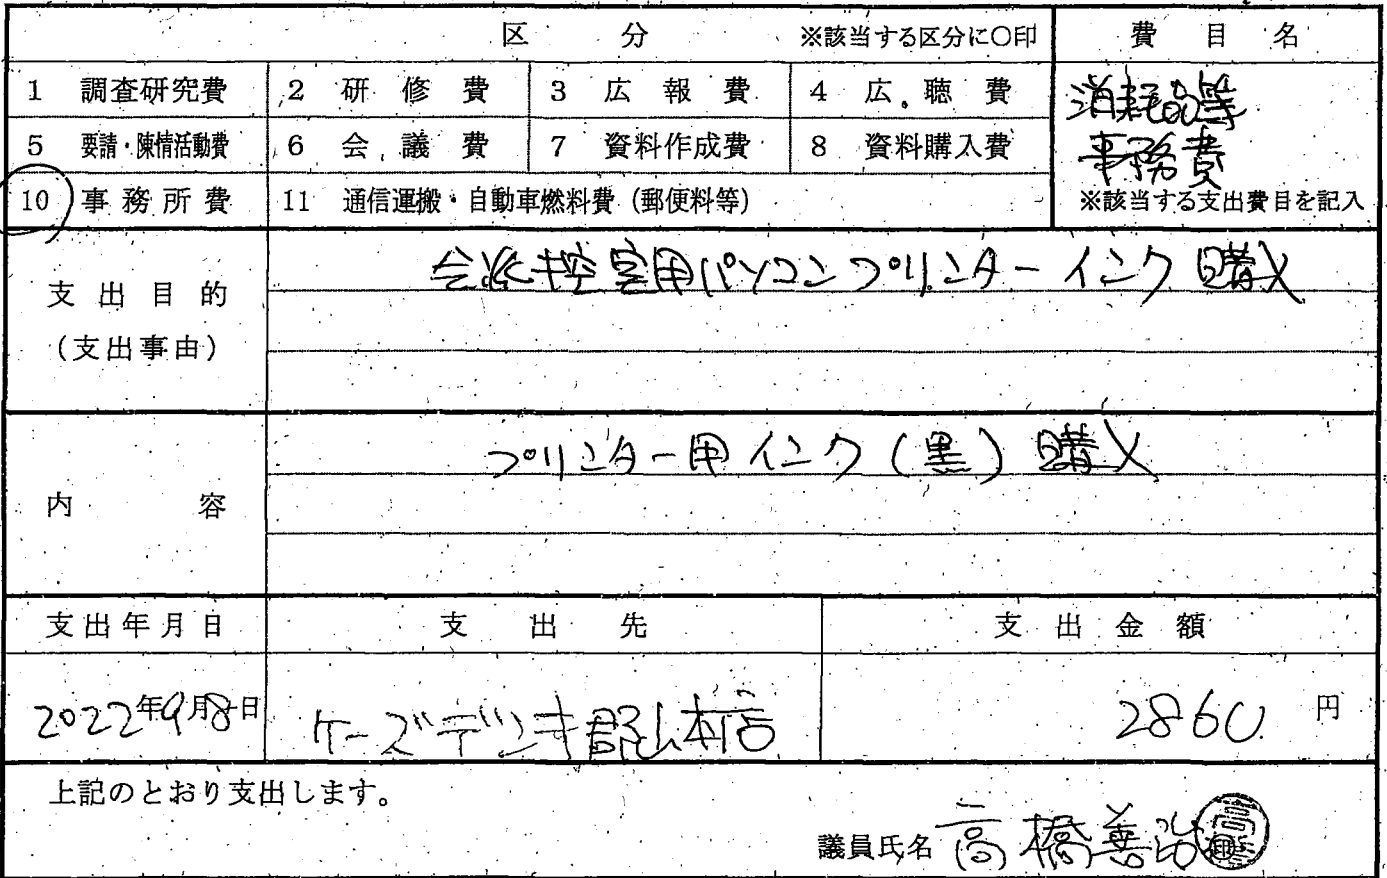 区 分 ※該当する区分に○印 費 目 名
1 調査研究費 2 研修費 3 広報費 4 広聴費 消耗品等
5 要請・陳情活動費 6 会議費 7 資料作成費 8 資料購入費 事務費
10 事務所費 11 通信運搬・自動車燃料費（郵便料等） ※該当する支出費目を記入
会派控室用パソコンプリンターインク購入
支出目的
（支出事由）
プリンター用インク（黒）購入
内 容
支出年月日 支 出 先 支 出 金 額
2022年9月8日 ケーズデンキ郡山本店 2860 円
上記のとおり支出します。
議員氏名 高橋善治